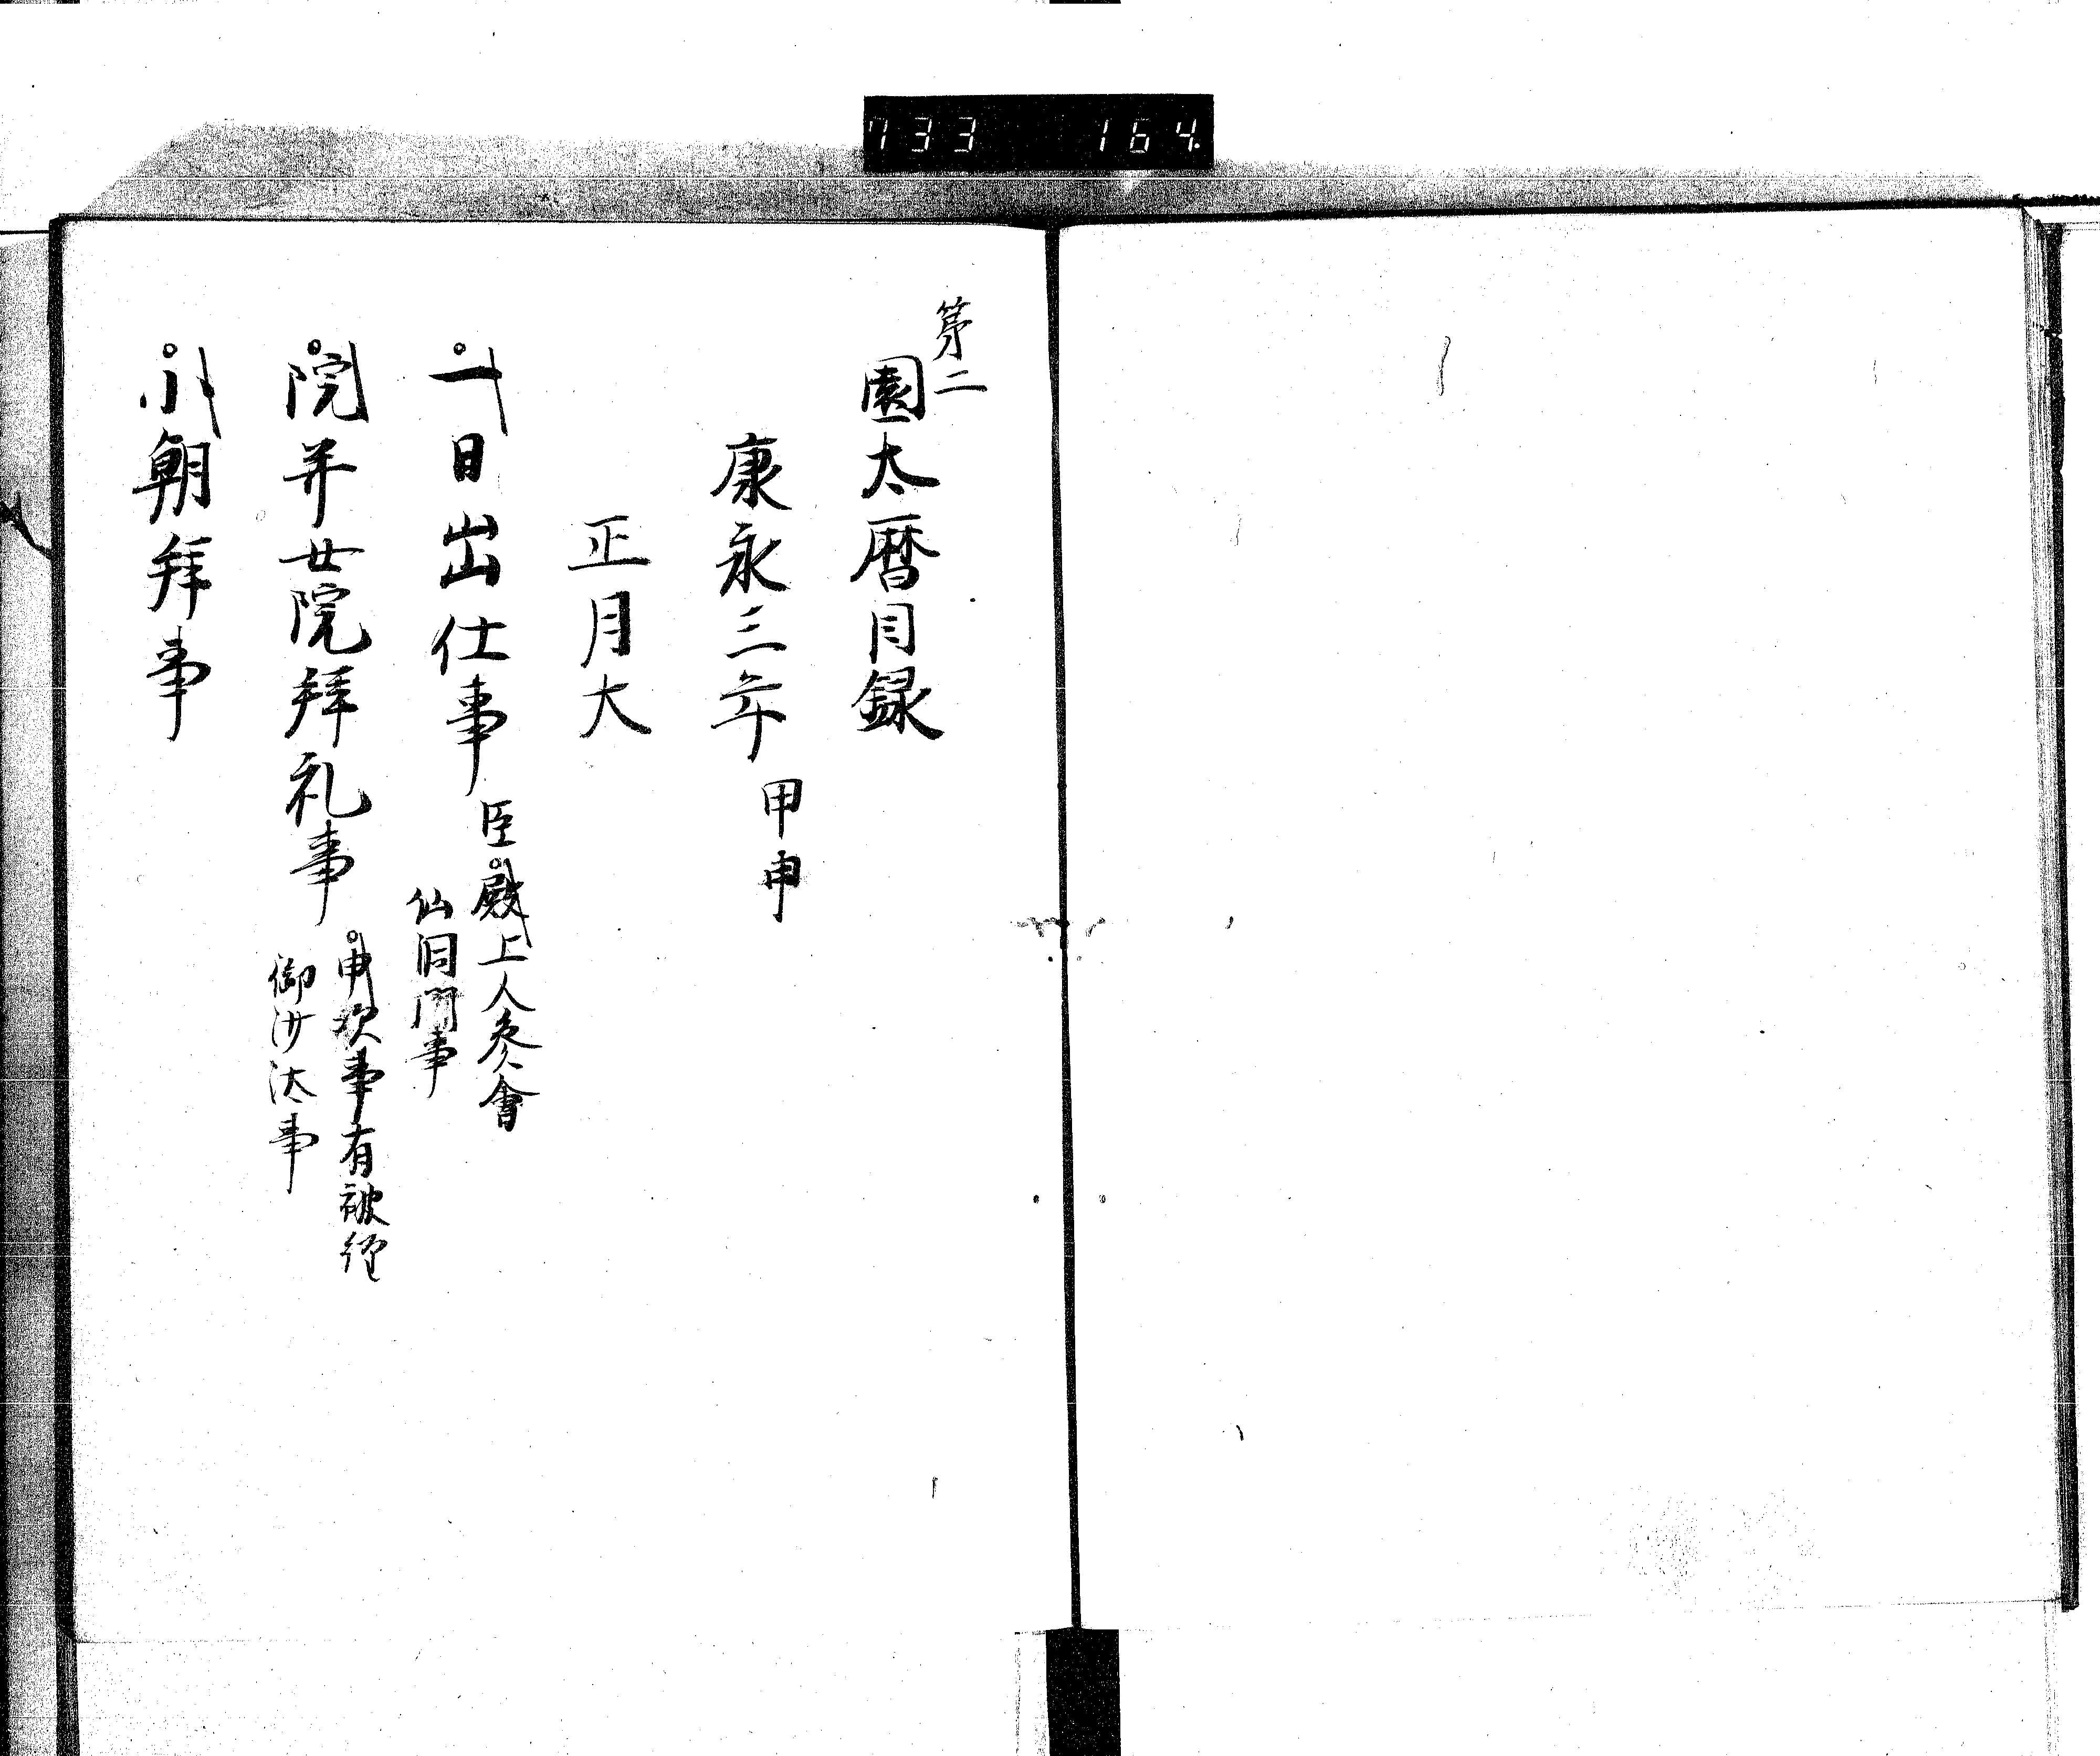 733 164
第二
園太暦目録
康永三年 甲申
正月大
一日出仕事 臣殿上人参會
仙洞門事
院并女院拜礼事 申次事有被経
御沙汰事
小朝拜事